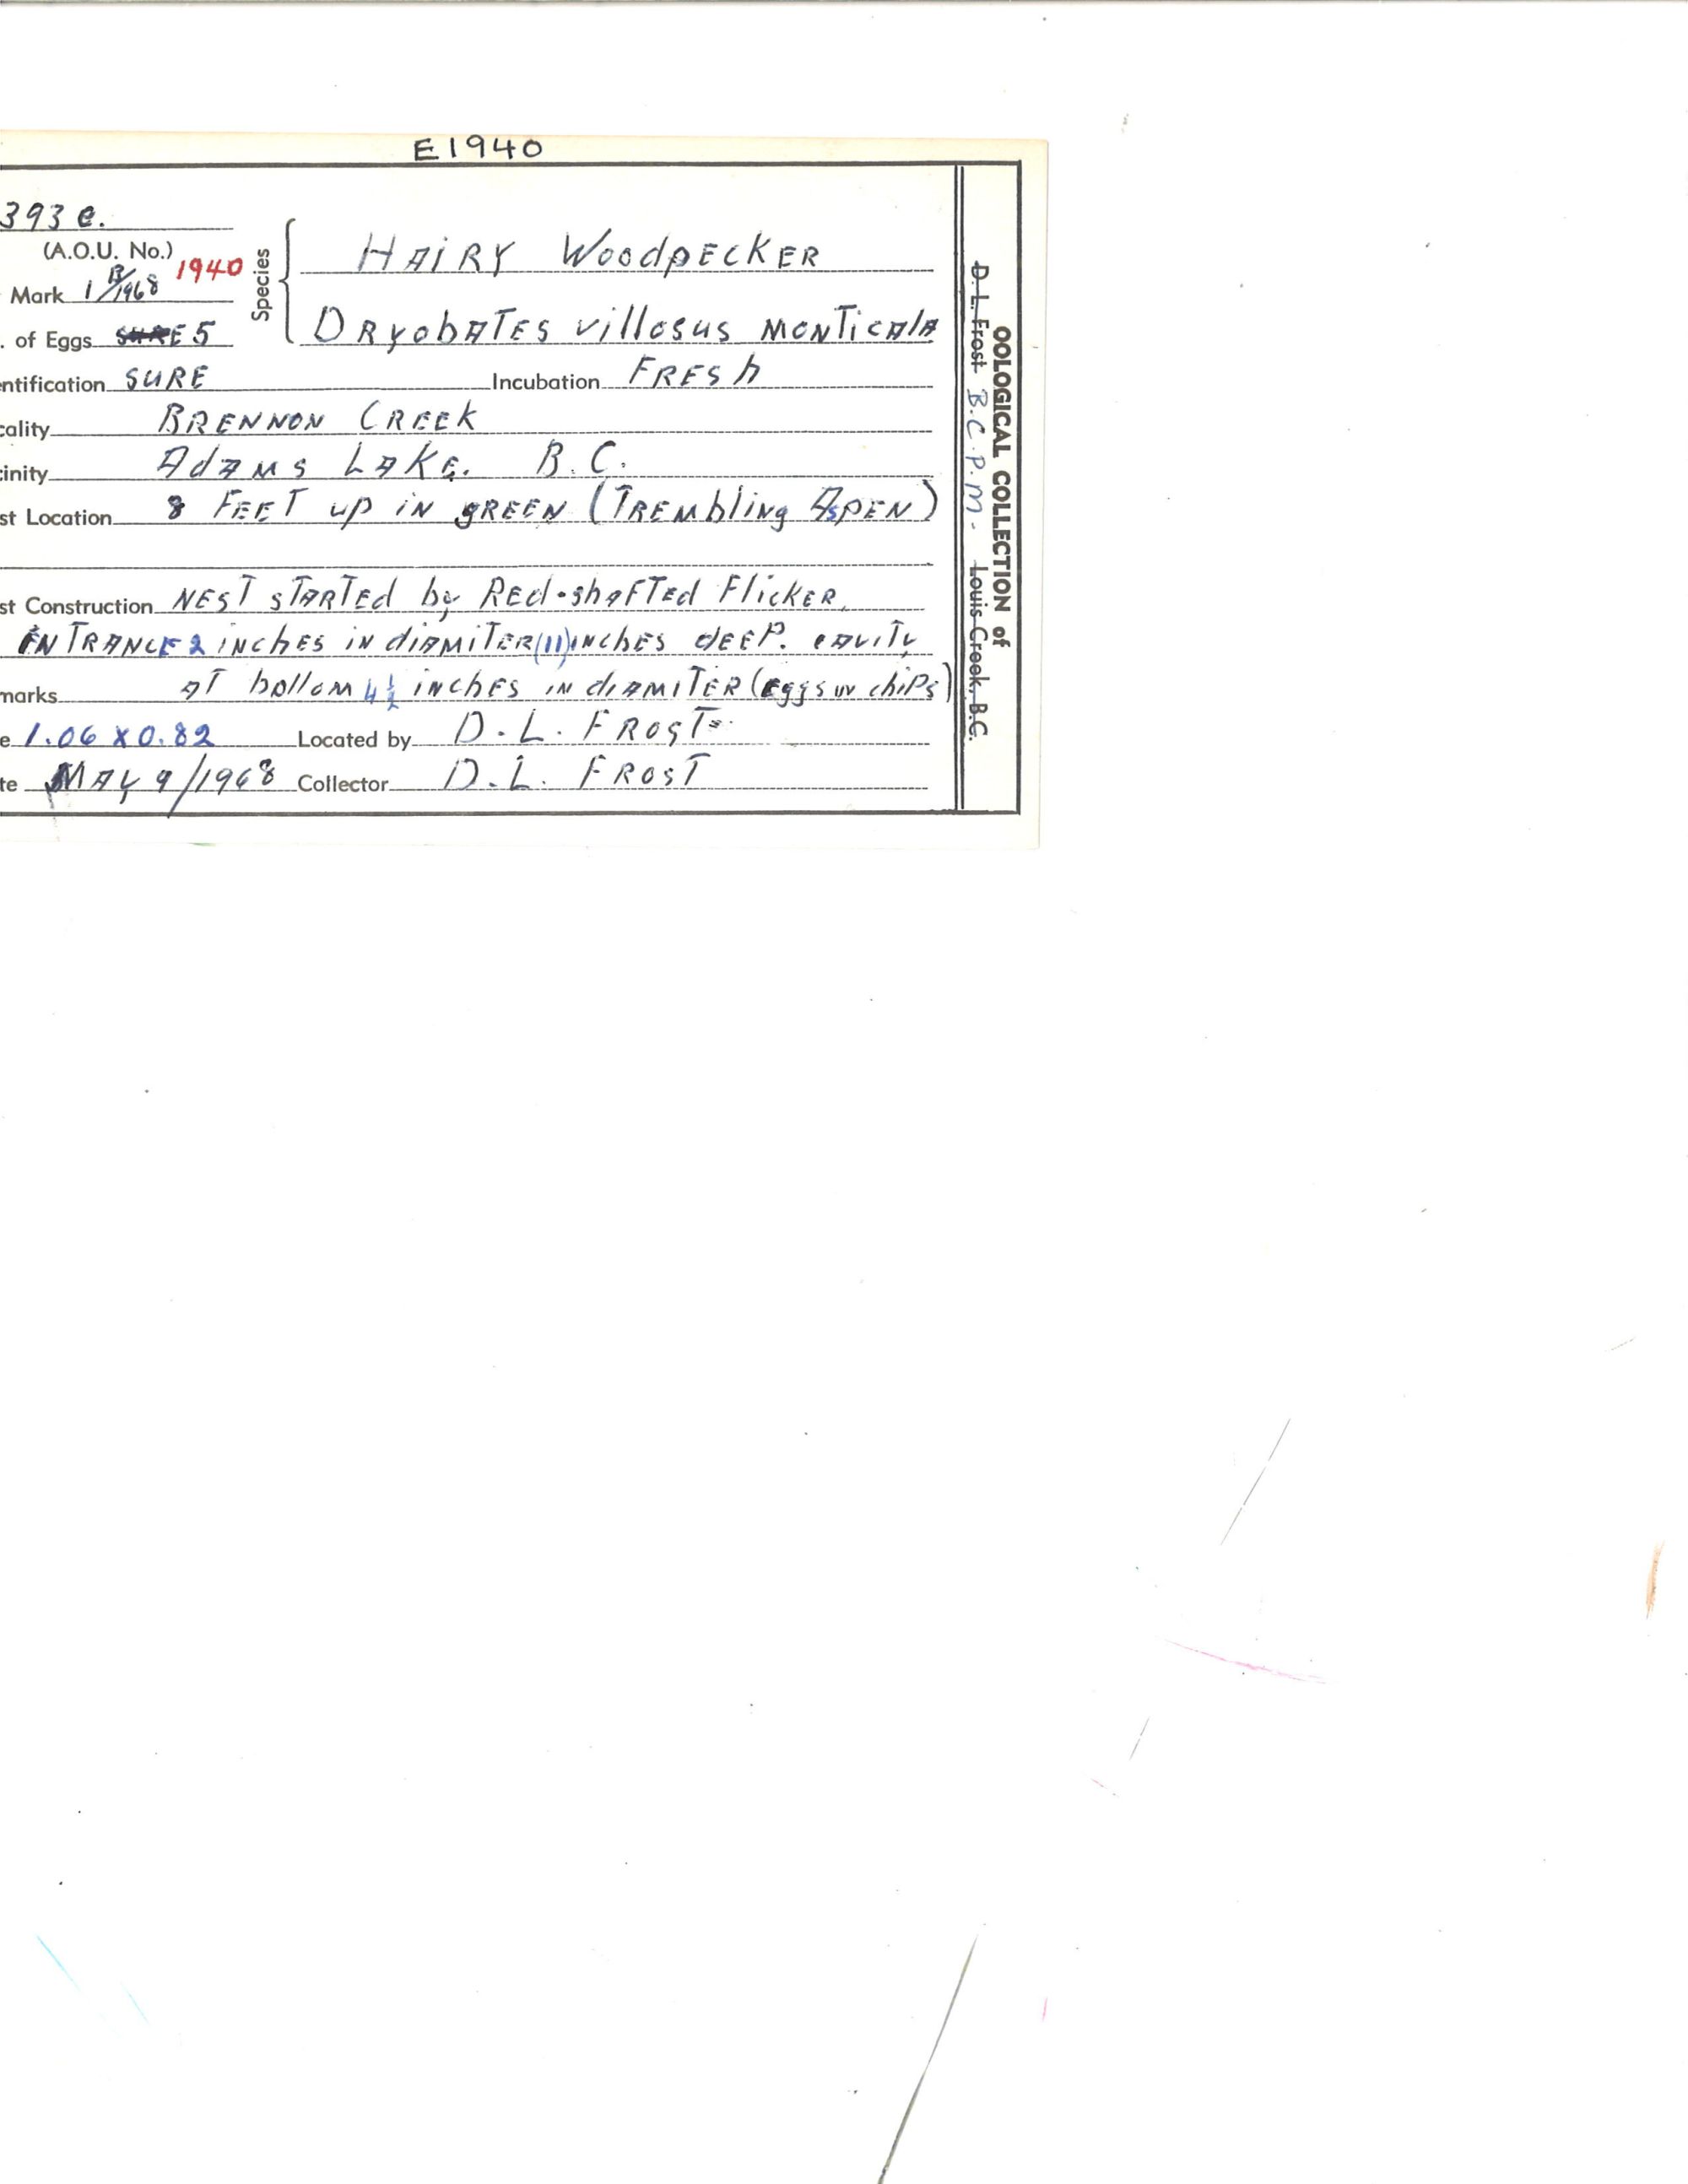 E1940
393 e.
(A.O.U. No.)
Mark 1 B/1968 1940
Species
HAiRY WoodpECKER
DRyobATES villosus MONTicAlA
. of Eggs E5
ntification SURE Incubation FRESh
cality BRENNON CREEK
inity AdAMS LAKE. B.C.
st Location 8 FEET up iN gREEN (TREMbling AspEN)
st Construction NEST sTARTEd by REd-shAFTEd FlicKER,
ENTRANCE 2 iNchES iN diAMiTER (11) iNchES dEEP. cAviTy
marks AT boTTom 4½ iNchES iN diAMiTER (Eggs iN chiPs)
e 1.06 X 0.82 Located by D.L. FROST
te MAy 9/1968 Collector D.L. FROST
OOLOGICAL COLLECTION of
D. L. Frost B.C.P.M. Louis Creek, B.C.